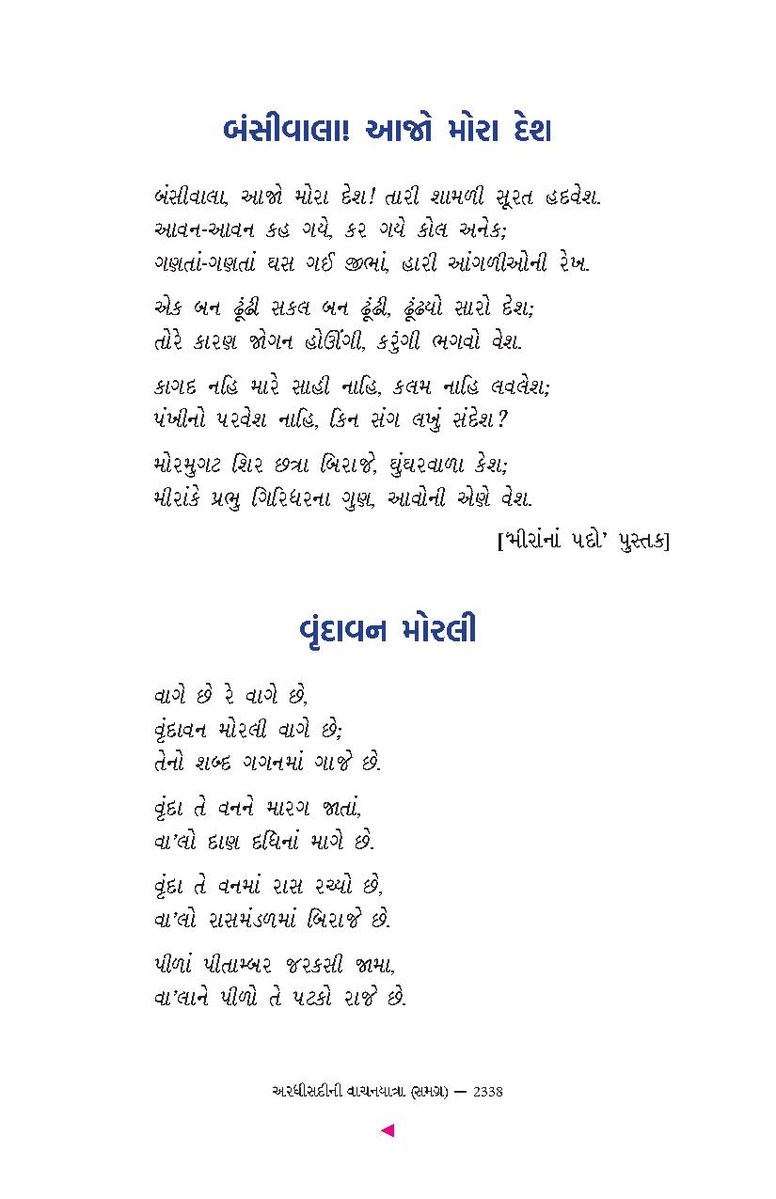 બંસીવાલા! આજો મોરા દેશ
બંસીવાલા, આજો મોરા દેશ! તારી શામળી સૂરત હદવેશ.
આવન-આવન કહ ગયે, કર ગયે કોલ અનેક;
ગણતાં-ગણતાં ઘસ ગઈ જીભાં, હારી આંગળીઓની રેખ.
એક બન ઢૂંઢી સકલ બન ઢૂંઢી, ઢૂંઢ્યો સારો દેશ;
તોરે કારણ જોગન હોઊંગી, કરુંગી ભગવો વેશ.
કાગદ નહિ મારે સાહી નાહિ, કલમ નાહિ લવલેશ;
પંખીનો પરવેશ નાહિ, કિન સંગ લખું સંદેશ?
મોરમુગટ શિર છત્રા બિરાજે, ઘુંઘરવાળા કેશ;
મીરાંકે પ્રભુ ગિરિધરના ગુણ, આવોની એણે વેશ.
[‘મીરાંનાં પદો’ પુસ્તક]
વૃંદાવન મોરલી
વાગે છે રે વાગે છે,
વૃંદાવન મોરલી વાગે છે;
તેનો શબ્દ ગગનમાં ગાજે છે.
વૃંદા તે વનને મારગ જાતાં,
વા’લો દાણ દધિનાં માગે છે.
વૃંદા તે વનમાં રાસ રચ્યો છે,
વા’લો રાસમંડળમાં બિરાજે છે.
પીળાં પીતામ્બર જરકસી જામા,
વા’લાને પીળો તે પટકો રાજે છે.
અરધીસદીની વાચનયાત્રા (સમગ્ર) — 2338